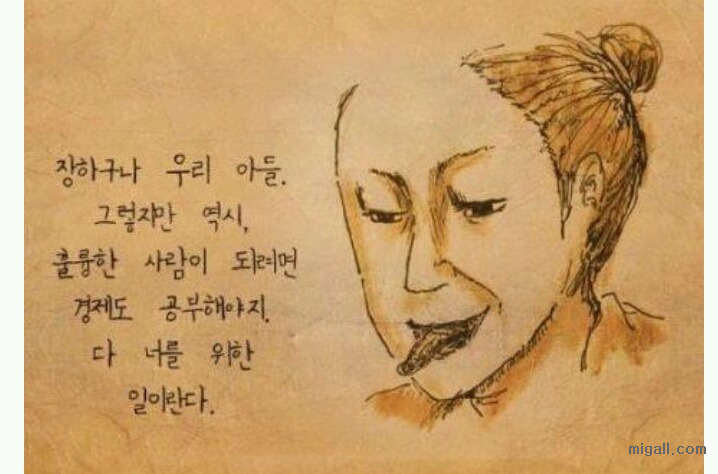 장하구나 우리 아들.
그렇지만 역시,
훌륭한 사람이 되려면
경제도 공부해야지.
다 너를 위한
일이란다.
migall.com